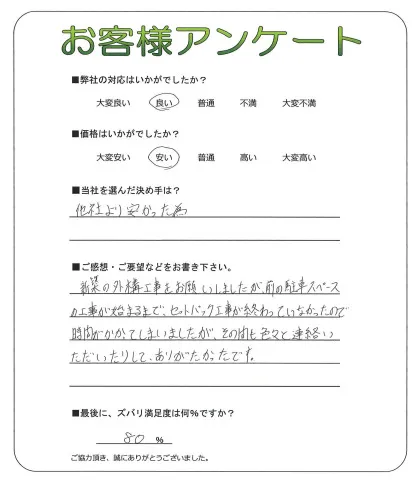 お客様アンケート
■弊社の対応はいかがでしたか?
大変良い 良い 普通 不満 大変不満
■価格はいかがでしたか?
大変安い 安い 普通 高い 大変高い
■当社を選んだ決め手は?
他社より安かった為
■ご感想・ご要望などをお書き下さい。
新築の外構工事をお願いしましたが、前の駐車スペース
の工事が始まるまで、セットバック工事が終わっていなかったので
時間がかかってしまいましたが、その間も色々と連絡い
ただいたりして、ありがたかったです。
■最後に、ズバリ満足度は何%ですか?
80 %
ご協力頂き、誠にありがとうございました。